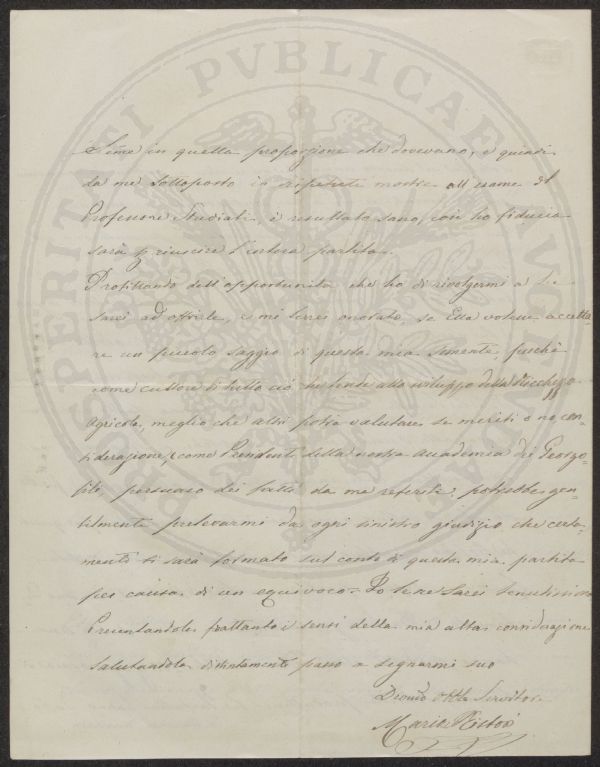 PROSPERITATI PVBLICAE AVGENDAE
in quella proporzione che dovevano, e quindi
da me sottoposto in ripetute mostre all'esame del
Professore Studiati, è resultato sano, così ho fiducia
sarà p riuscire l'intera partita.
Profittando dell'opportunità che ho di rivolgermi a Lei
sarei ad offrirle, e mi terrei onorato se Ella volesse accetta
re un piccolo saggio di questa mia semente, perchè
come cultore di tutto ciò che tende allo sviluppo della Ricchezza
Agricola, meglio che altri potrà valutare se meriti o no con-
siderazione, e come Presidente della nostra Accademia dei Georgo-
fili, persuaso dei fatti da me referiti, potrebbe gen-
tilmente prelevarmi da ogni sinistro giudizio che certa-
mente si sarà formato sul conto di questa mia partita
per causa di un equivoco. Io le ne sarei tenutissimo
Presentandole frattanto i sensi della mia alta considerazione
salutandola distintamente passo a segnarmi suo
Devmo Obblo Servitore
Mario